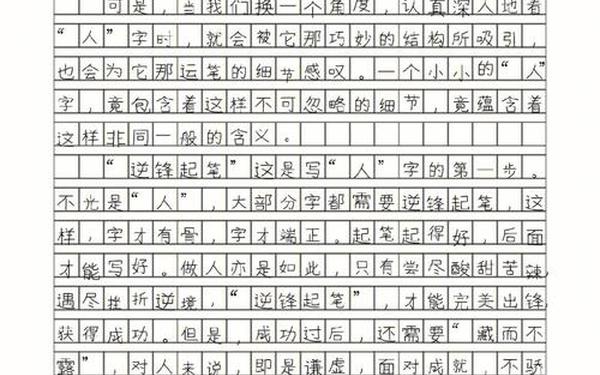 可是，当我们换一个角度，认真深入地看
“人”字时，就会被它那巧妙的结构所吸引，
也会为它那运笔的细节感叹。一个小小的“人”
字，竟包含着这样不可忽略的细节，竟蕴含着
这样非同一般的含义。
“逆锋起笔”这是写“人”字的第一步。
不光是“人”，大部分字都需要逆锋起笔，这
样，字才有骨，字才端正。起笔起得好，后面
才能写好。做人亦是如此，只有尝尽酸甜苦辣，
遇尽挫折逆境，“逆锋起笔”，才能完美出锋，
获得成功。但是，成功过后，还需要“藏而不
露”，对人来说，即是谦虚，面对成就，不骄